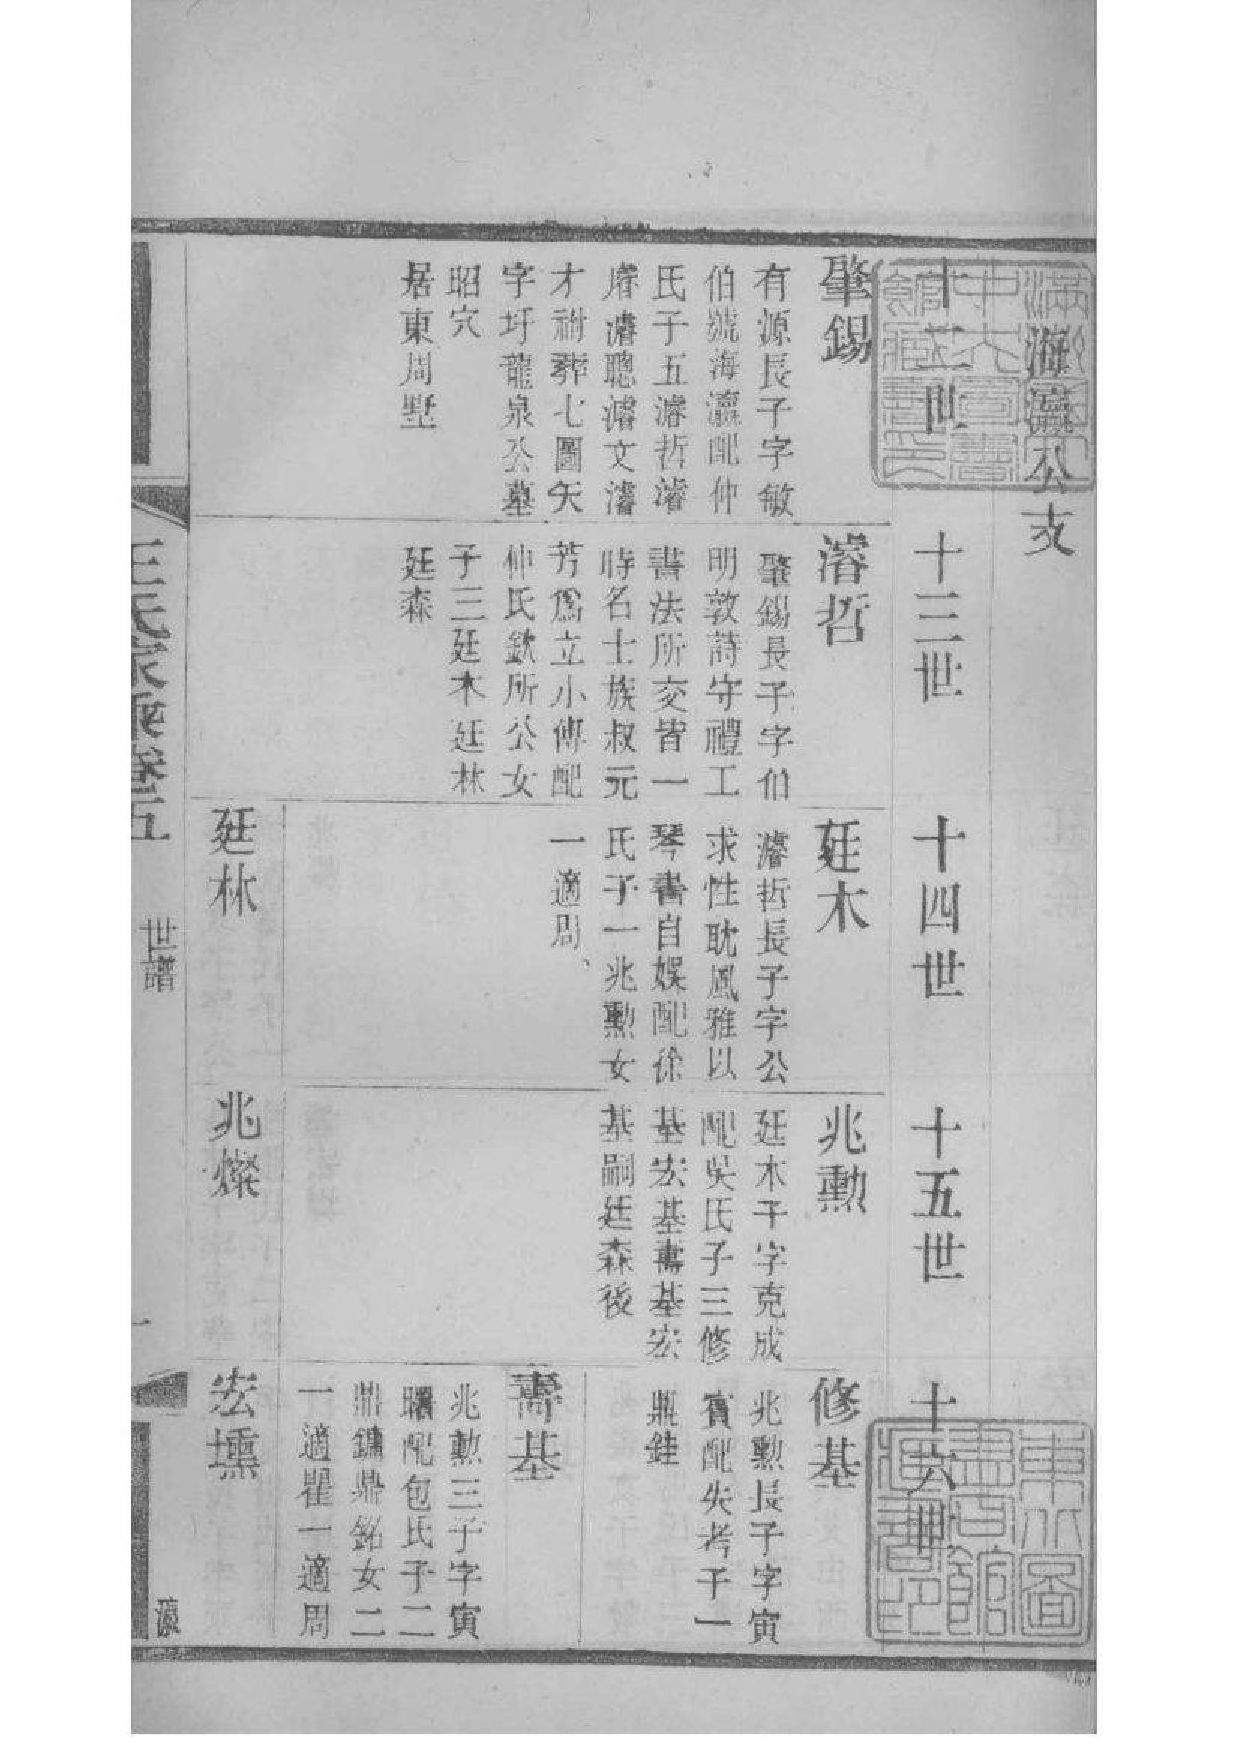 海瀛公支
十二世
十三世
十四世
十五世
十六世
肇錫
有源長子字敏
伯號海瀛配仲
氏子五濬哲濬
濬聰濬文濬
才祔葬七圖矢
字圩龍泉公墓
昭穴
居東周墅
濬哲
肇錫長子字伯
明敦詩守禮工
書法所交皆一
時名士族叔元
芳爲立小傳配
仲氏欽所公女
子三廷木廷林
廷森
廷木
濬哲長子字公
求性耽風雅以
琴書自娛配徐
氏子一兆勳女
一適周
兆勳
廷木子字克成
配吳氏子三修
基宏基壽基宏
基嗣廷森後
修基
兆勳長子字寅
賓配失考子一
鼎銈
壽基
兆勳三子字寅
曙配包氏子二
鼎鏞鼎銘女二
一適瞿一適周
廷林
兆燦
宏壎
王氏家乘卷五
世譜
一
瀛